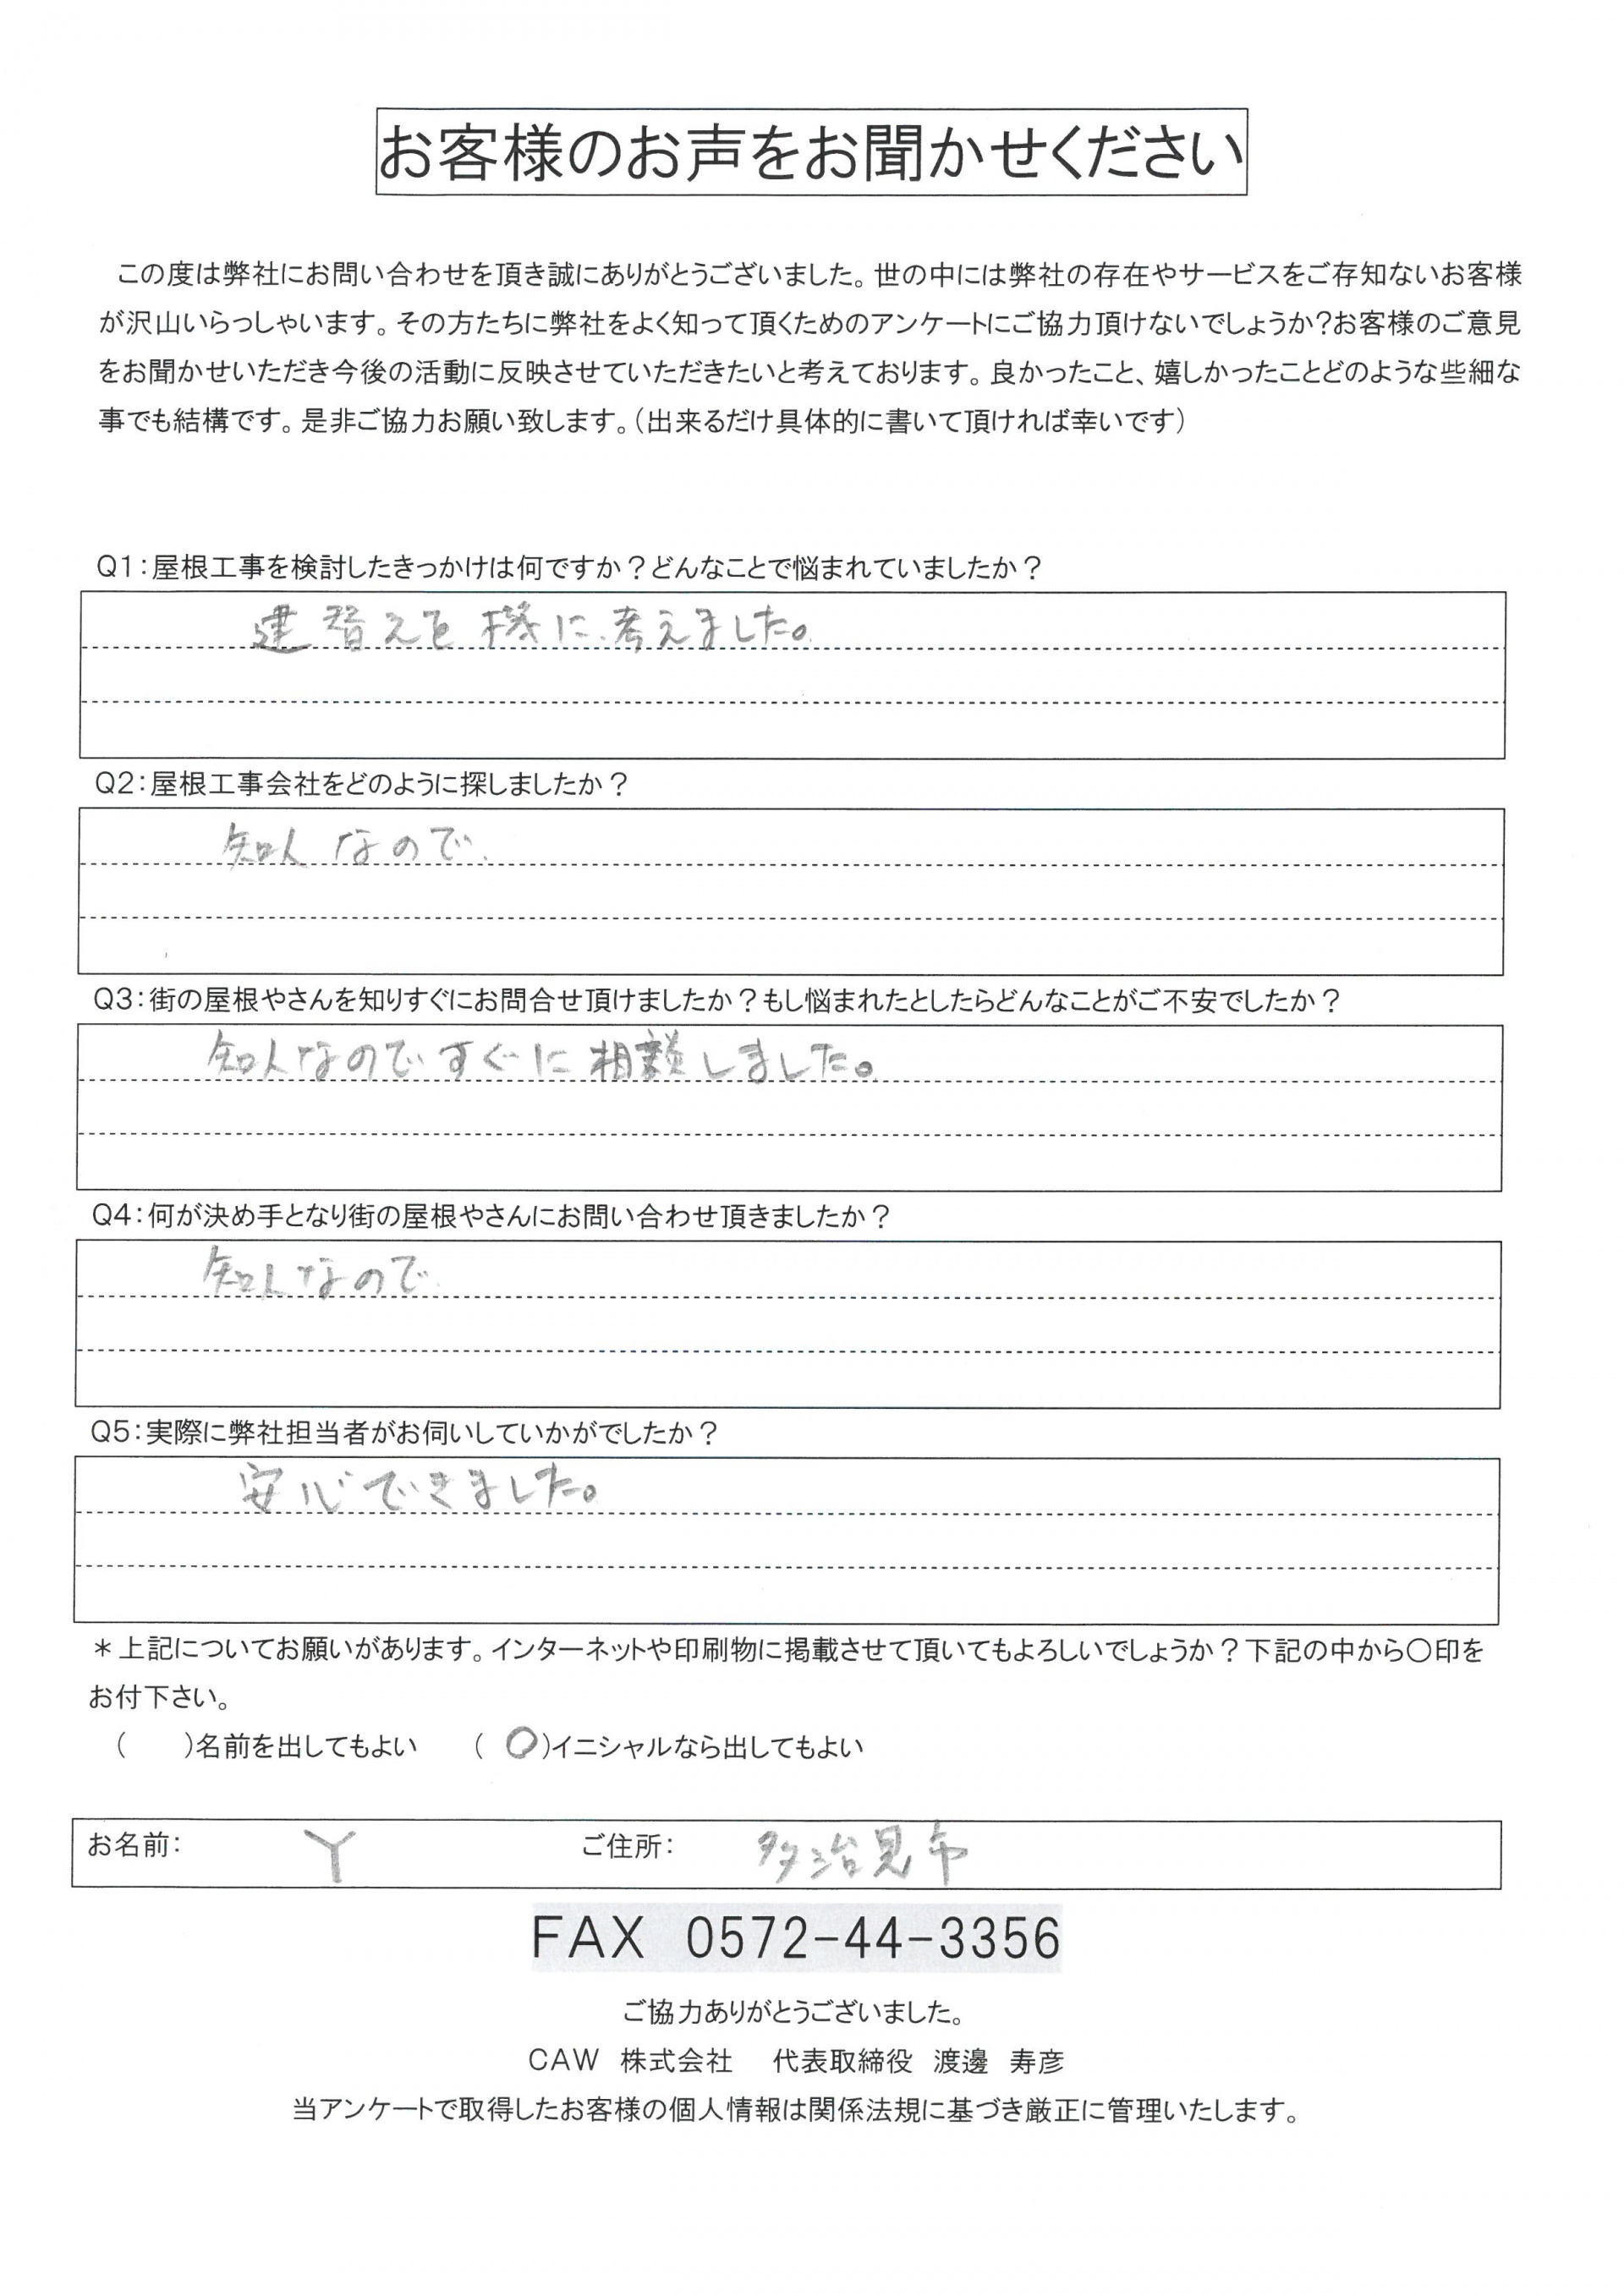 お客様のお声をお聞かせください
この度は弊社にお問い合わせを頂き誠にありがとうございました。世の中には弊社の存在やサービスをご存知ないお客様
が沢山いらっしゃいます。その方たちに弊社をよく知って頂くためのアンケートにご協力頂けないでしょうか?お客様のご意見
をお聞かせいただき今後の活動に反映させていただきたいと考えております。良かったこと、嬉しかったことどのような些細な
事でも結構です。是非ご協力お願い致します。(出来るだけ具体的に書いて頂ければ幸いです)
Q1:屋根工事を検討したきっかけは何ですか?どんなことで悩まれていましたか?
建替えを機に考えました。
Q2:屋根工事会社をどのように探しましたか?
知人なので、
Q3:街の屋根やさんを知りすぐにお問合せ頂けましたか?もし悩まれたとしたらどんなことがご不安でしたか?
知人なのですぐに相談しました。
Q4:何が決め手となり街の屋根やさんにお問い合わせ頂きましたか?
知人なので
Q5:実際に弊社担当者がお伺いしていかがでしたか?
安心できました。
*上記についてお願いがあります。インターネットや印刷物に掲載させて頂いてもよろしいでしょうか?下記の中から○印を
お付下さい。
(　　)名前を出してもよい　　( ○)イニシャルなら出してもよい
お名前:　Y　ご住所:　多治見市
FAX 0572-44-3356
ご協力ありがとうございました。
CAW 株式会社　代表取締役 渡邊 寿彦
当アンケートで取得したお客様の個人情報は関係法規に基づき厳正に管理いたします。